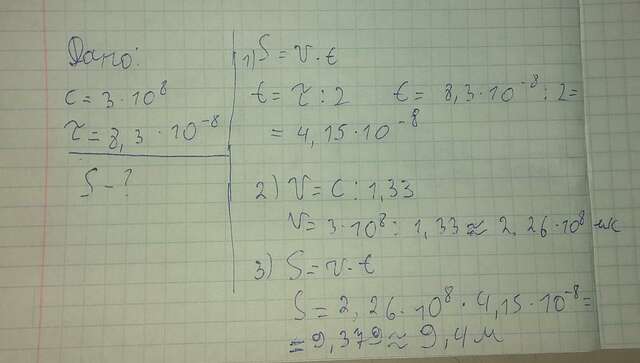 Дано:
c = 3·10⁸
τ = 8,3·10⁻⁸
S - ?
1) S = v·t
t = τ : 2 t = 8,3·10⁻⁸ : 2 =
= 4,15·10⁻⁸
2) V = c : 1,33
V = 3·10⁸ : 1,33 ≈ 2,26·10⁸ м/с
3) S = v·t
S = 2,26·10⁸·4,15·10⁻⁸ =
= 9,379 ≈ 9,4 м